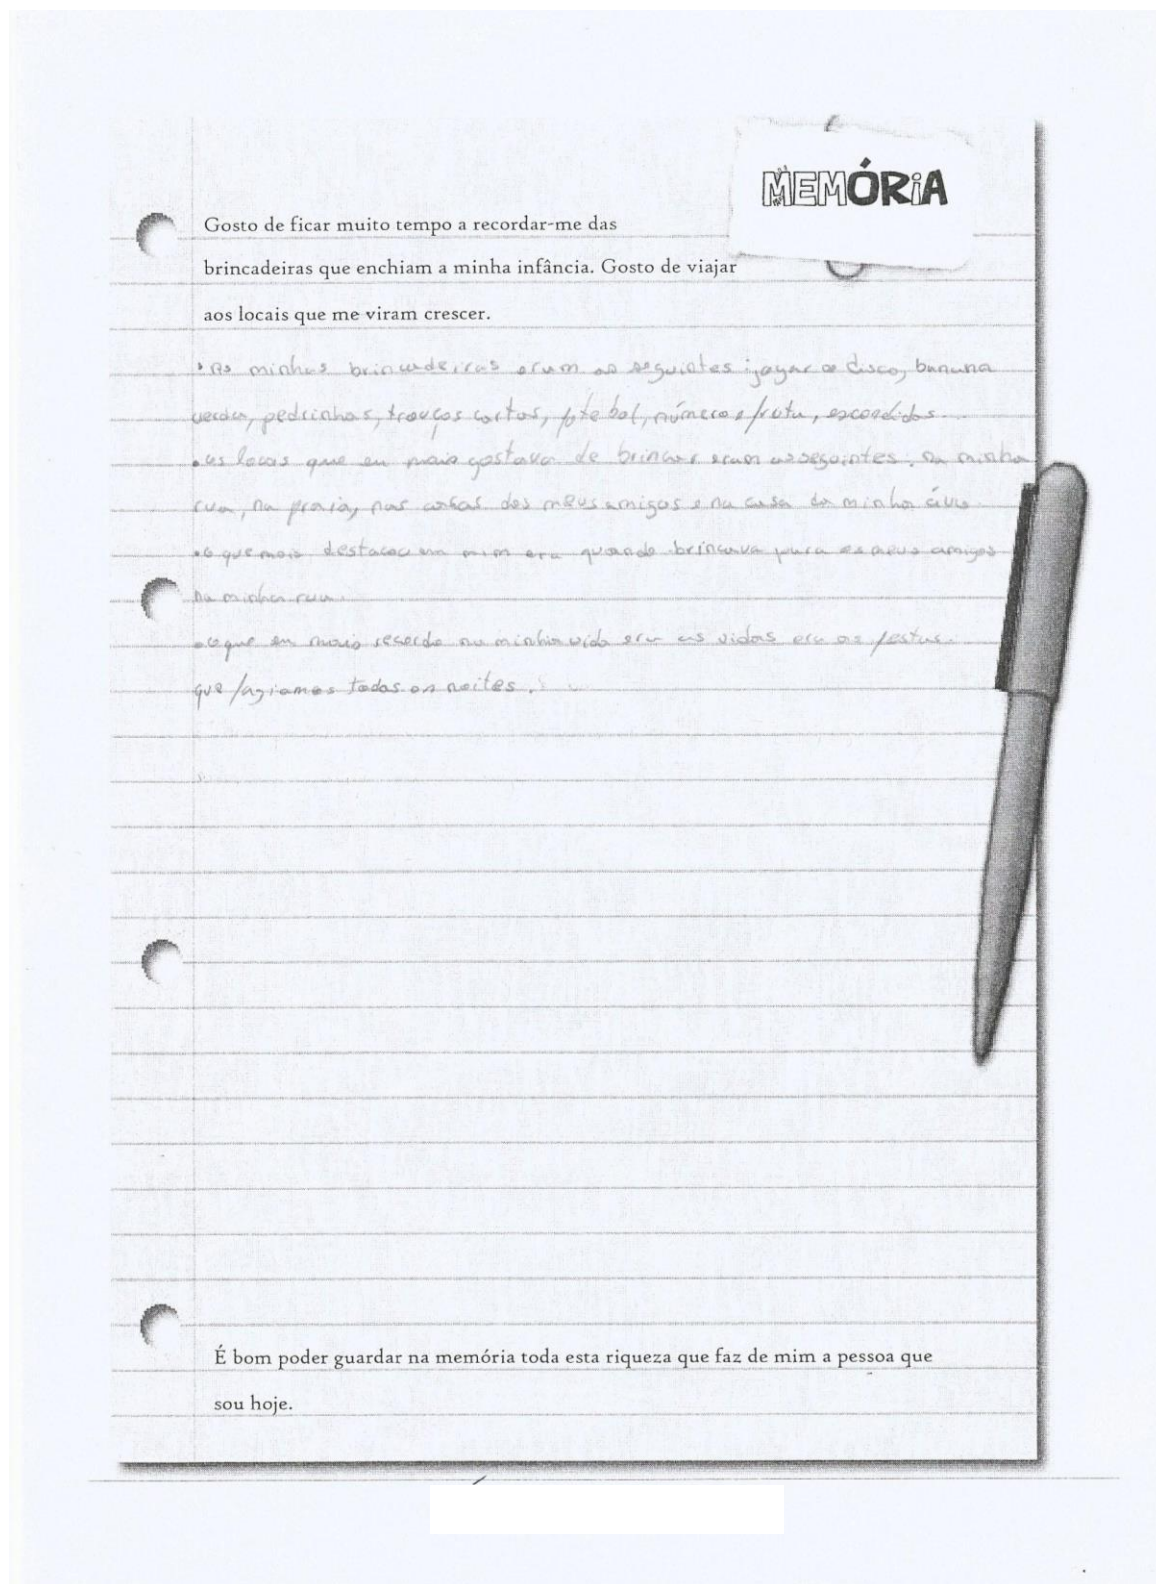 MEMÓRiA
Gosto de ficar muito tempo a recordar-me das
brincadeiras que enchiam a minha infância. Gosto de viajar
aos locais que me viram crescer.
• As minhas brincadeiras eram as seguintes: jogar o disco, banana
verde, pedrinhas, trouços cartas, fute bol, número e fruta, escondidos.
• os locais que eu mais gostava de brincar eram as seguintes: na minha
rua, na praia, nas casas dos meus amigos e na casa da minha
• O que mais destacou em mim era quando brincava para os meus amigos
na minha rua.
• O que eu mais recordo na minha vida era as vidas era as festas
que fazíamos todas as noites.
É bom poder guardar na memória toda esta riqueza que faz de mim a pessoa que
sou hoje.